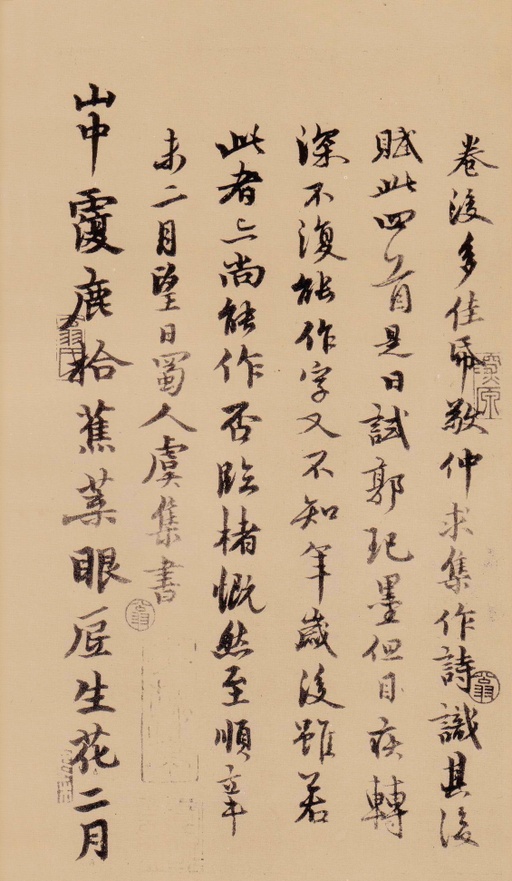 卷後多佳帋敬仲求集作詩識其後
賦此四首是日試郭玘墨但目疾轉
深不復能作字又不知年歲後雖若
此者亦尚能作否臨楮慨然至順辛
未二月望日蜀人虞集書
山中覆鹿拾蕉葉眼底生花二月